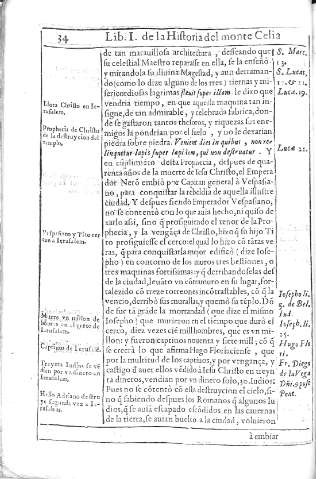 34 Lib. I. de la Historia del monte Celia
de tan maravillosa architetura, desseando que
su celestial Maestro reparasse en ella, se la enseñò
y mirandola su divina Magestad, y aun derraman-
do (como lo dize alguno de los tres) tiernas y mi-
sericordiosas lagrimas flevit super illam le dixo que
vendria tiempo, en que aquella maquina tan in-
signe, de tan admirable, y celebrada fabrica, don-
de se gastaron tantos thesoros, y riquezas sus ene-
migos la pondrian por el suelo, y no le dexarian
piedra sobre piedra. Venient dies in quibus, non re-
linquetur lapis super lapidem, qui non destruatur. Y
en cumplimiẽto desta Prophecia, despues de qua-
renta años de la muerte de Iesu Christo, el Empera
dor Nerõ embiò por Capitan general à Vespasia-
no, para conquistar la rebeldia de aquella illustre
ciudad. Y despues siendo Emperador Vespasiano,
no se contentò con lo que avia hecho, ni quiso de
xarlo assi, sino q̃ prosiguiendo el tenor de la Pro-
phecia, y la vengãça de Christo, hizo q̃ su hijo Ti
to prosiguiesse el cerco: el qual lo hizo cõ tãtas ve
ras, q̃ para conquistar la mejor edificò (dize Iose-
pho) en contorno de los muros tres bestiones, o
tres maquinas fortissimas: y q̃ derribandoselas des
de la ciudad, levãtò un cõtramuro en su lugar, for-
talezido cõ treze torreones incõtrastables, cõ q̃ la
vencio, derribò sus murallas, y quemò su tẽplo. Dõ
de fue tã grãde la mortandad (que dize el mismo
Iosepho) que murieron en el tiempo que durò el
cerco, diez vezes ciẽ mil hombres, que es vn mi-
llon: y fueron captivos noventa y siete mil; cõ q̃
se creerà lo que afirma Hugo Florinciense, que
por la multitud de los captivos, y por vengança, y
castigo d'aver ellos vẽdido à Iesu Christo en treyn
ta dineros, vendian por vn dinero solo, 30. Iudios:
Pues no se cõtentò cõ esta destruycion el cielo, si-
no q̃ sabiendo despues los Romanos q̃ algunos Iu
dios, q̃ se aviã escapado escõdidos en las cavernas
de la tierra, se avian buelto a la ciudad, volvieron
à embiar
Llora Christo en Ie-
rusalem.
Prophecia de Christo
de la destruycion del
templo.
Vespasiano y Tito cer-
tan a Ierusalem.
Muere vn millon de
Iudios en el cerco de
Ierusalem.
Captivos de Ierusalẽ.
Treynta Iudios se vẽ
dian por vn dinero en
Ierusalem.
Helio Adriano destru
ye segunda vez a Ie-
rusalem.
S. Marc.
13.
S. Lucas,
Luca. 19.
Luca 21.
Iosepho li.
de Bel.
Iud.
Iosepho. li.
Hugo Flo
Fr. Diego
de la Vega
Pent.